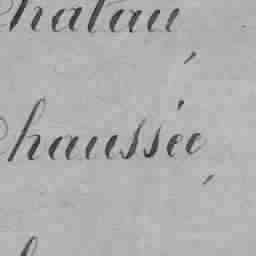 hatau,
Chaussée,